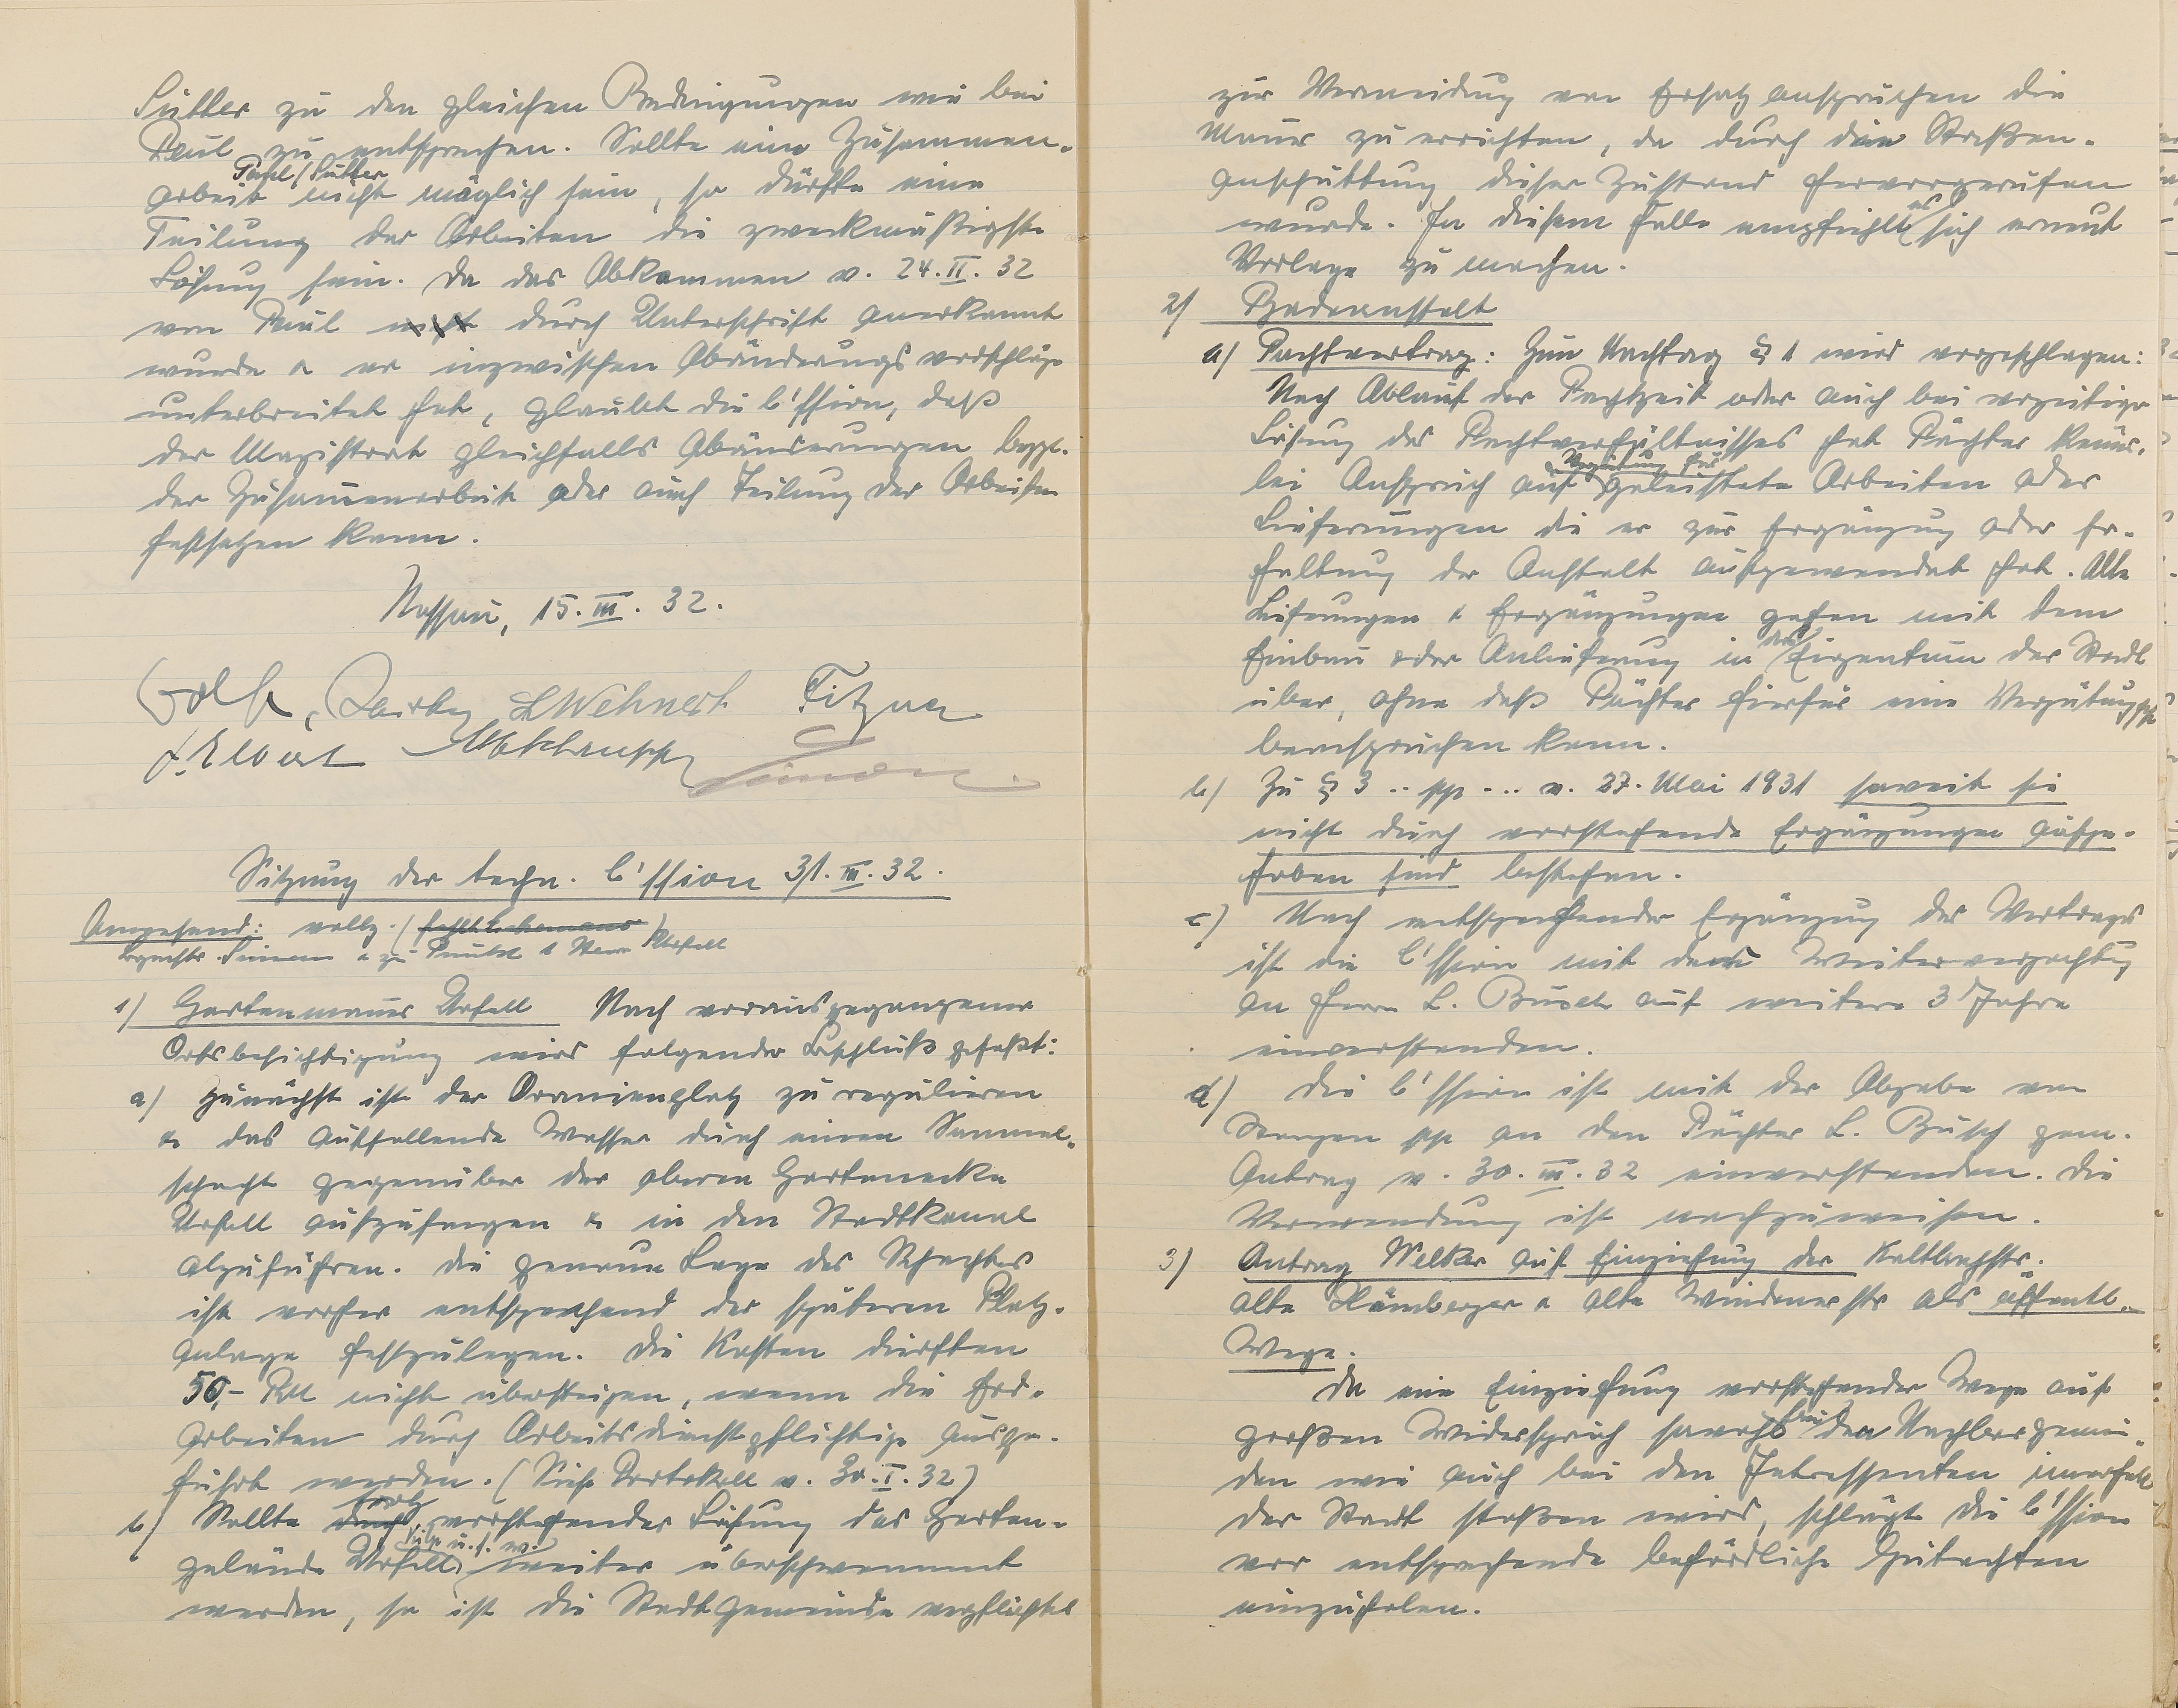 Sutter zu den gleichen Bedingungen wie bei
Paul zu entsprechen. Sollte eine Zusammen-
Paul/Sutter
arbeit nicht möglich sein, so dürfte eine
Teilung der Arbeiten die zweckmäßigste
Lösung sein. Da das Abkommen v. 24.II.32
von Paul nicht durch Unterschrift anerkannt
wurde & er inzwischen Abänderungsvorschläge
unterbreitet hat, glaubt die C'ssion, daß
der Magistrat gleichfalls Abänderungen bezgl.
der Zusammenarbeit oder auch Teilung der Arbeiten
festsetzen kann.
Nassau, 15.III.32.
LWehnert Fitzner
Simon
Sitzung der techn. C'ssion 31.III.32.
Anwesend: vollz. (fehlt
Simon & zu Punkt 1 Herr Urfell
1) Gartenmauer Urfell Nach vorausgegangener
Ortsbesichtigung wird folgender Beschluß gefaßt:
a) Zunächst ist der Oranienplatz zu regulieren
& das auffallende Wasser durch einen Sammel-
schacht gegenüber der oberen Gartenecke
Urfell aufzufangen & in den Stadtkanal
abzuführen. Die genaue Lage des Schachtes
ist vorher entsprechend der späteren Platz-
anlage festzulegen. Die Kosten dürften
50,- RM nicht übersteigen, wenn die Erd-
arbeiten durch Arbeitsdienstpflichtige ausge-
führt werden. (Siehe Protokoll v. 30.I.32)
trotz
b) Sollte durch vorstehender Lösung das Garten-
u.s.w.
gelände Urfell weiter überschwemmt
werden, so ist die Stadtgemeinde verpflichtet
zur Vermeidung von Ersatzansprüchen die
Mauer zu errichten, da durch die Straßen-
anschüttung dieser Zustand hervorgerufen
wurde. In diesem Falle empfiehlt es sich erneut
Vorlage zu machen.
2) Badeanstalt
a) Pachtvertrag: Zum Nachtrag § 1 wird vorgeschlagen:
Nach Ablauf der Pachtzeit oder auch bei vorzeitiger
Lösung des Pachtverhältnisses hat Pächter keiner-
Vergütung für
lei Anspruch auf geleistete Arbeiten oder
Lieferungen die er zur Ergänzung oder Er-
haltung der Anstalt aufgewendet hat. Alle
Lieferungen & Ergänzungen gehen mit dem
Einbau oder Anlieferung in das Eigentum der Stadt
über, ohne daß Pächter hierfür eine Vergütung pp
beanspruchen kann.
b) Zu § 3 .. pp ... v. 27. Mai 1931 soweit sie
nicht durch vorstehende Ergänzungen aufge-
hoben sind bestehen.
c) Nach entsprechender Ergänzung des Vertrages
ist die C'ssion mit der Weiterverpachtung
an Herrn L. Busch auf weitere 3 Jahre
einverstanden.
d) Die C'ssion ist mit der Abgabe von
Stangen pp an den Pächter L. Busch gem.
Antrag v. 30.III.32 einverstanden. Die
Verwendung ist nachzuweisen.
3) Antrag Welker auf Einziehung der Kaltbachstr.
alte Hömberger & alte Windenerstr als öffentl.
Wege.
Da eine Einziehung vorstehender Wege auf
großen Widerspruch sowohl bei den Nachbargemein-
den wie auch bei den Interessenten innerhalb
der Stadt stoßen wird, schlägt die C'ssion
vor entsprechende behördliche Gutachten
einzuholen.